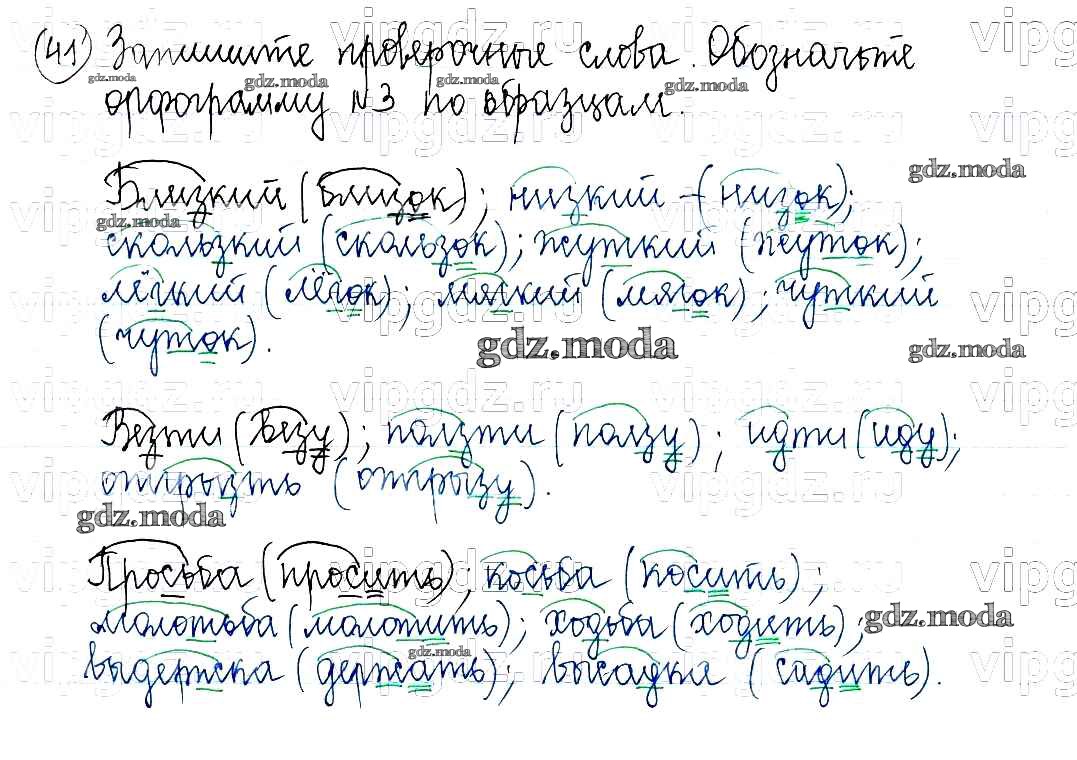 41) Запишите проверочные слова. Обозначьте
орфограмму №3 по образцам.
Близкий (близок); низкий – (низок);
скользкий (скользок); жуткий (жуток);
лёгкий (лёгок); мягкий (мягок); чуткий
(чуток).
Везти (везу); ползти (ползу); идти (иду);
отгрызть (отгрызу).
Просьба (просить); косьба (косить);
молотьба (молотить); ходьба (ходить),
выдержка (держать); высадка (садить).
vipgdz.ru
gdz.moda